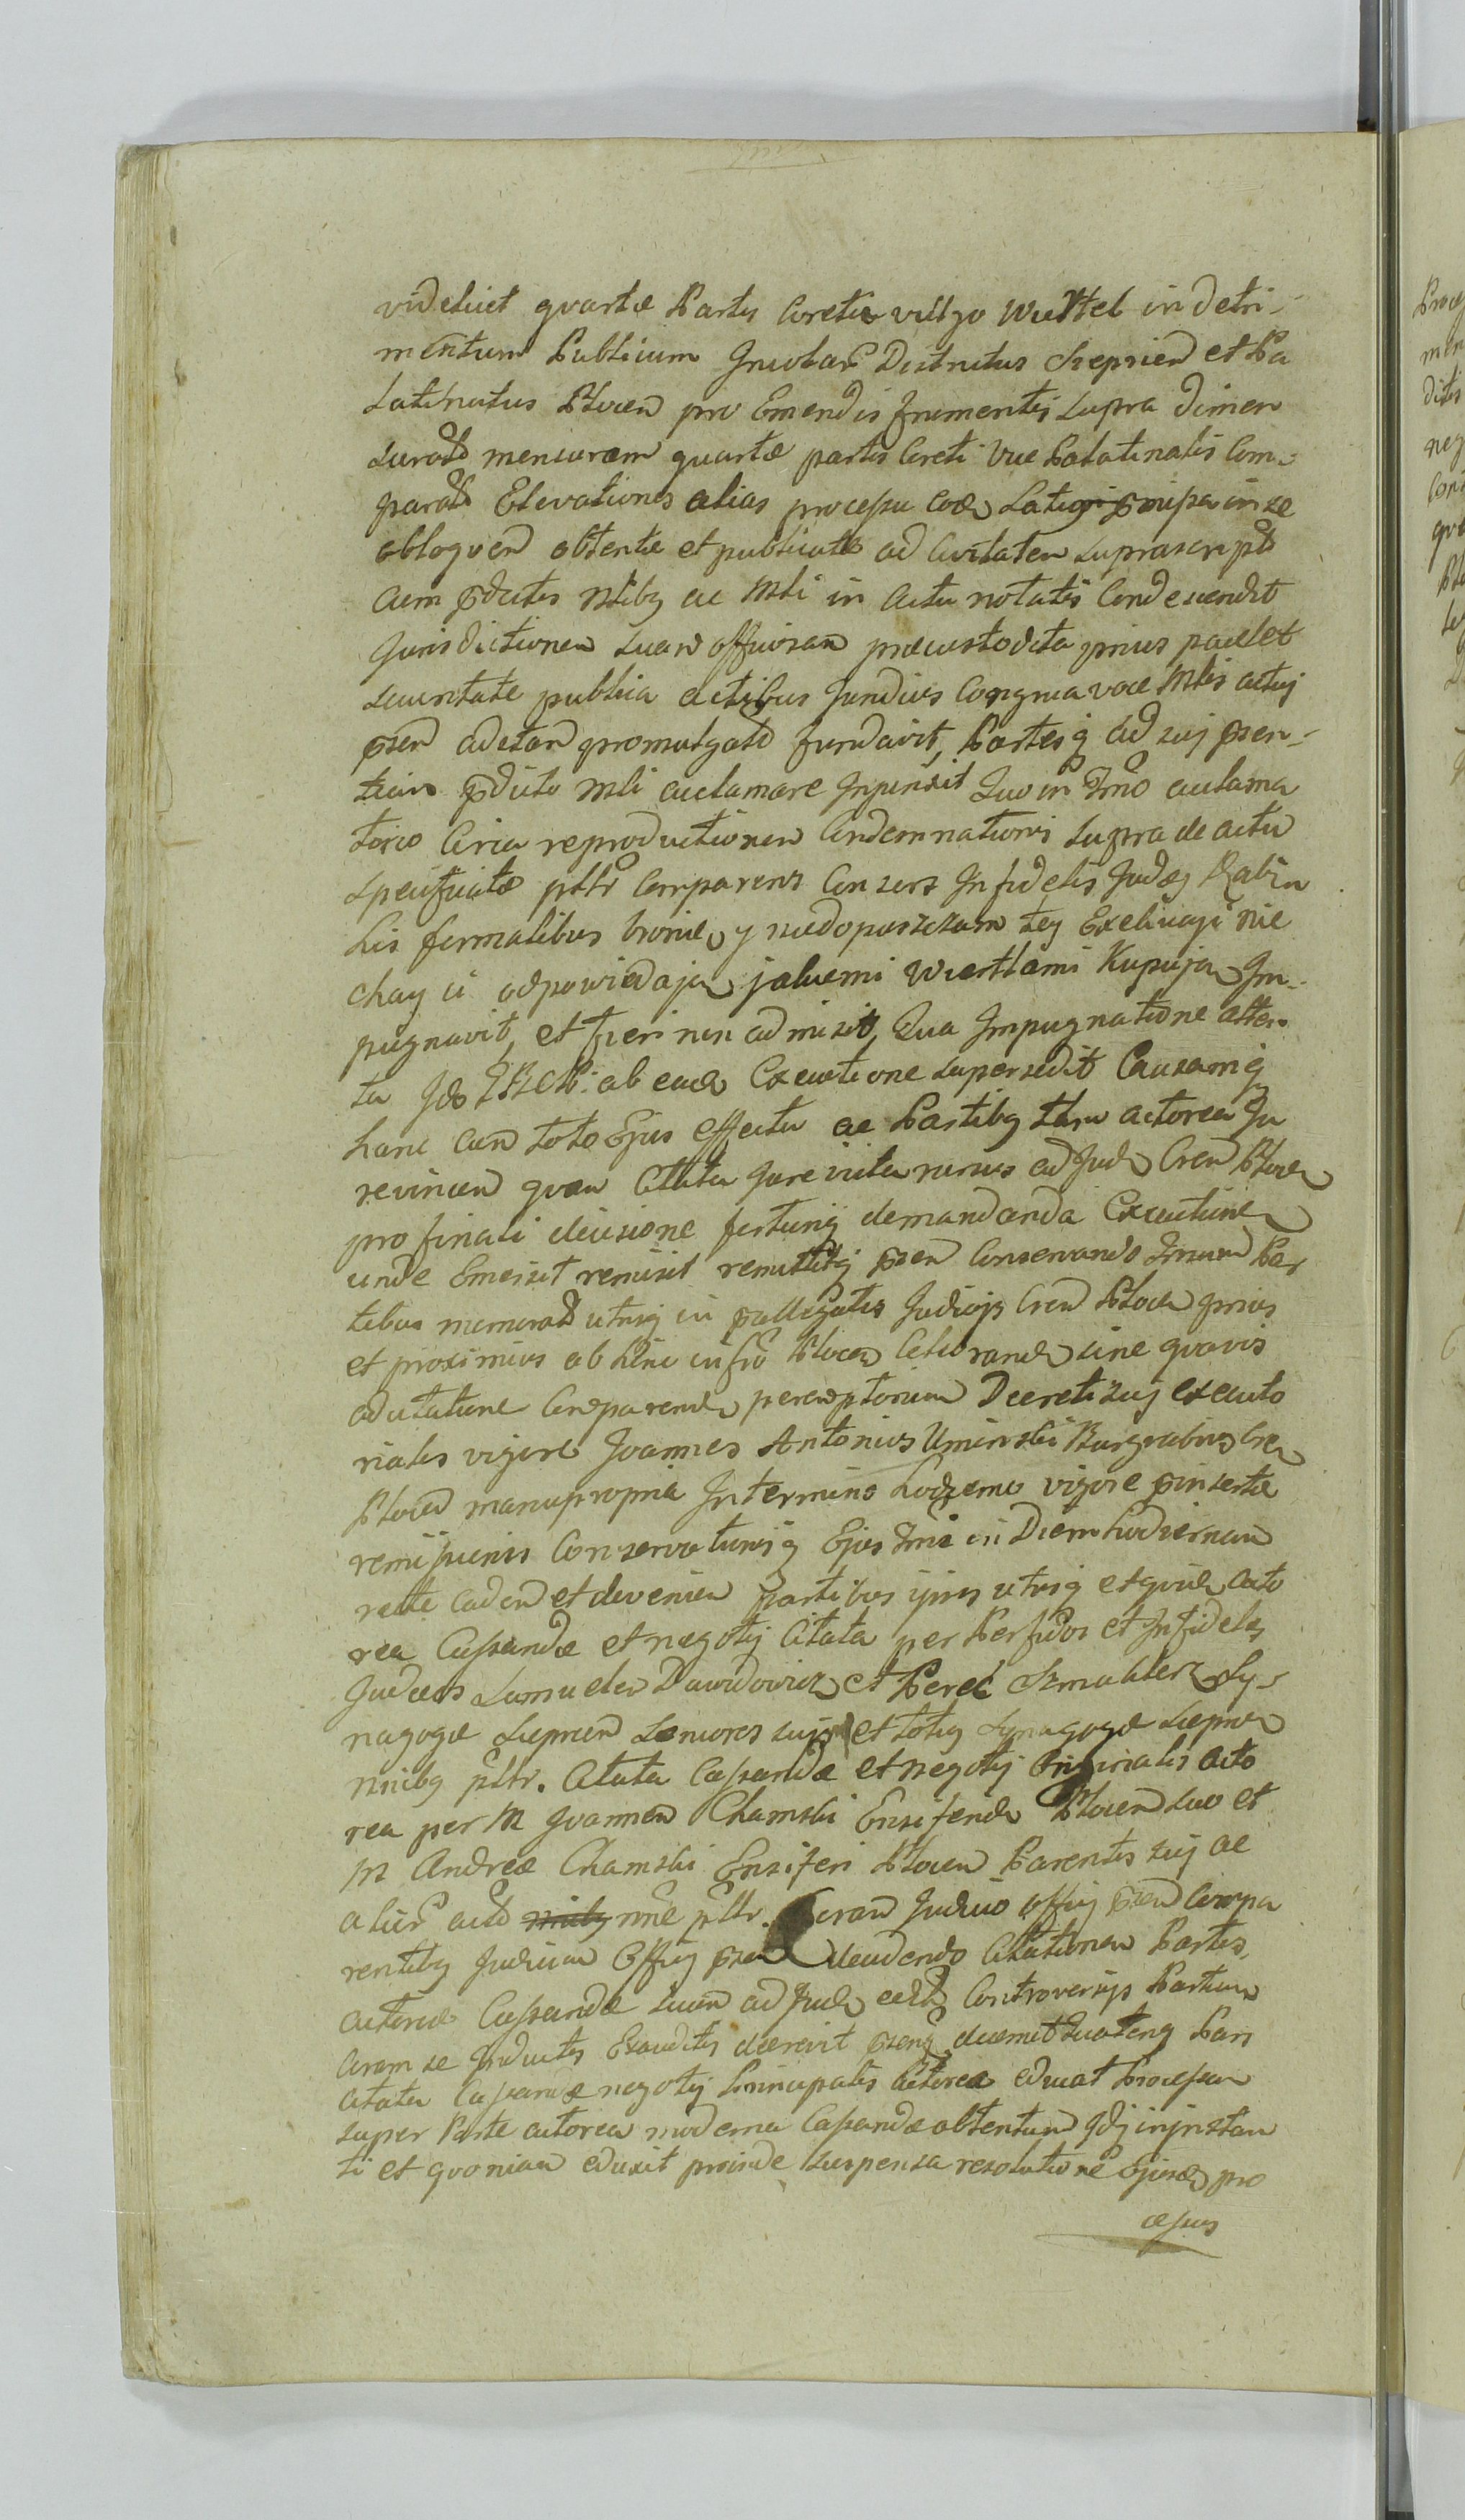 videlicet quartæ Partis Coretis vulgo Wiertel in detri-
mentum Publicum Incolar Districtus Sieprien et Pa
latinatus Plocen pro Emendis frumentis supra dimen
surato mensuram quartæ partis Coreti Vae Palatinatis Com-
parato Elevationes alias processu Coe Lati in se
obloquen obtente et publicato ad Civitaten suprascripto
cum pdictis Nlibq ac Mli in actu notatis Condescendit
Jurisdictionen suam officiosan præcustodita prius pace et
securitate publica actibus Jundicis Congrua voce Mlis actuj
psen adstan promulgato fundavit, Partesq ad suj psen-
tiam pdicto Mli acclamare Injunxit Quo in Tmo acclama
torio Circa reproductionen Condemnationis supra de actu
specificatæ pltr Comparens Consors Infidelis Judæj Rabin
his formalibus bronie y niedopuszczam tej Exekucyi nie
chay ci odpowiedaja jakiemi Wiertlami Kupuja Im-
pugnavit, et fieri non admisit, Qua Impugnatione atten
ta Jdo ab eade Executione supersedit Causamq
hanc cum toto Ejus effectu ac Partibq tam actorea Ju
revincen quam Citata Jure victa rursus ad Jud Cren Plocen
pro finali decisione fortiusq demandanda Executione
unde Emersit remisit remittitq psen Conservando Tmum Par
tibus memorato utrisq in pallegatis Judicijs Cren Plocen prius
et proximius ab hinc in fro Plocen Celebrande sine quavis
adcitatione Comparende peremptorium Decreti suj executo
rialis vigore Joannes Antonius Uminski Burgrabius Cren
Plocen manupropria In termino hodierno vigore pinsertæ
remissionis Conservationisq Ejus Tmi in Diem hodiernam
recte caden et devenien Partibus ipsis utrisq et quide acto
rea Cassandæ et negotij Citata per Perfidos et Infideles
Judæos Samuelen Dawidowicz et Perec Szmaklerz Sy-
nagogæ Sieprien Seniores suis et totiq Synagogæ Sieprien
nnibq pltr. Citata Cassandæ et negotij Principalis acto
rea per M Joannen Chamski Ensiferide Plocen suo et
M Andreæ Chamski Ensiferi Plocen Parentis suj ac
alior acto nne pltr. Coram Judicio offij psen Compa
rentibq Judicium Offij psen videndo Citationen Partis
actoreæ Cassandæ suam ad Jude Controversijs Partium
Coram se Inductis Exauditis decrevit psenq decernit Quatenq Pars
Citata Cassandæ negotij Principalis actorea educat Processum
super Parte actorea moderna Cassandæ obtentum Jdq in instan
ti et quoniam eduxit proinde suspensa resolutione Ejusde pro
cessus